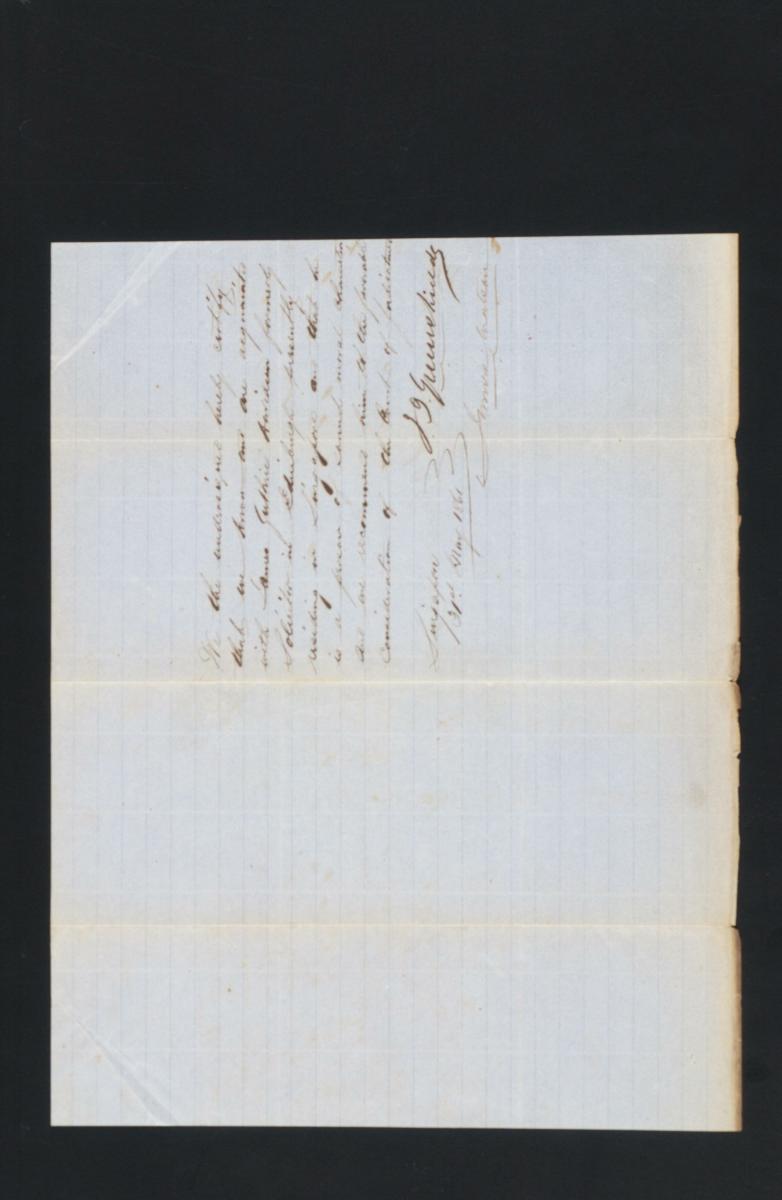 We the undersigned hereby certify
that we know and are acquainted
with James Guthrie Davidson formerly
Solicitor in Edinburgh presently
residing in Singapore and that he
is a person of moral character
and we recommend him to the favorable
consideration of the Court of Judicature
Singapore
31st May 1861